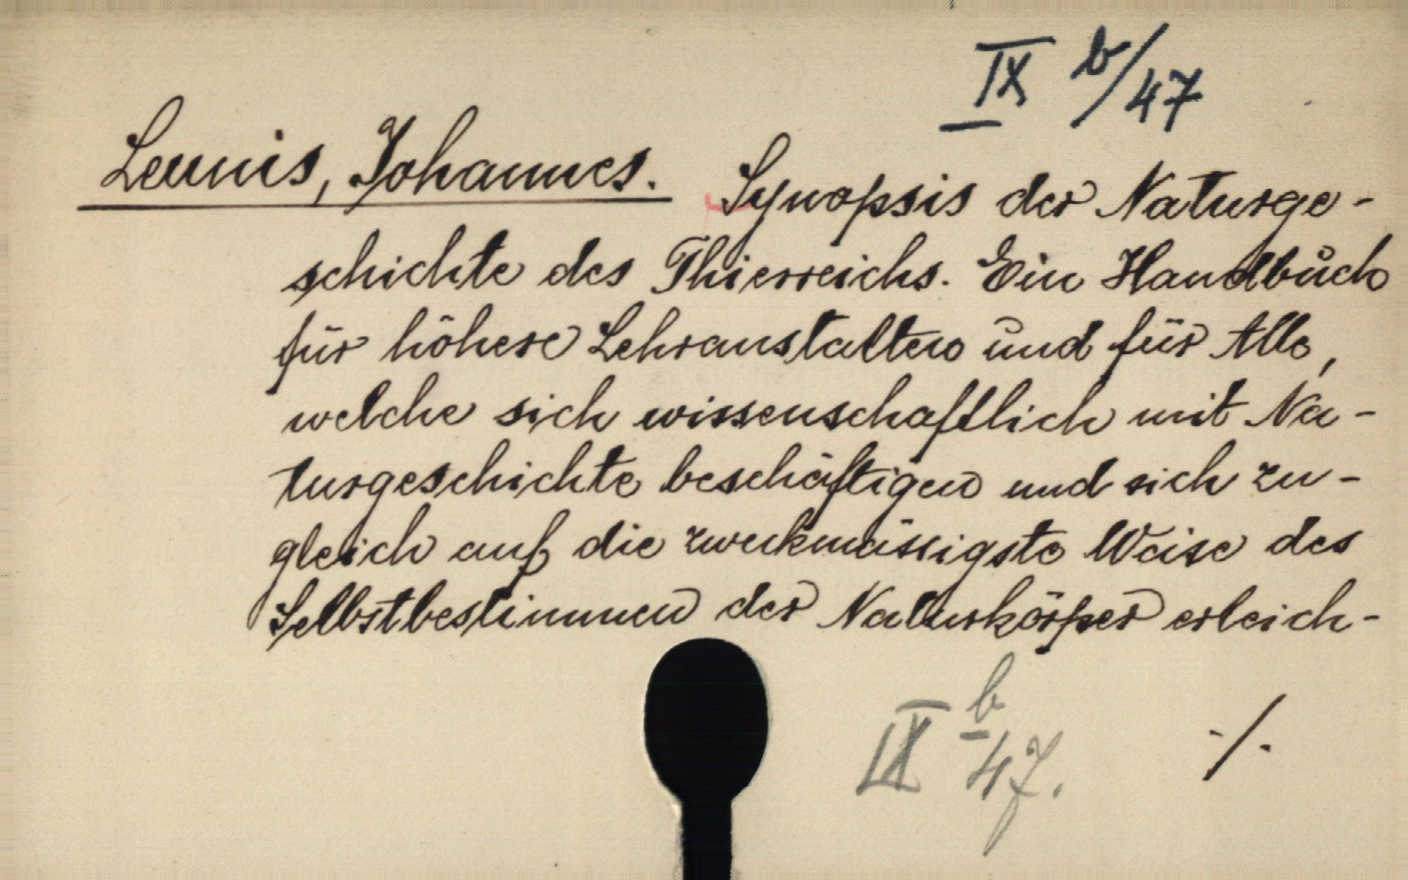 IX b/47
Leunis, Johannes. Synopsis der Naturge-
schichte des Thierreichs. Ein Handbuch
für höhere Lehranstalten und für Alle,
welche sich wissenschaftlich mit Na-
turgeschichte beschäftigen und sich zu-
gleich auf die zweckmässigste Weise des
Selbstbestimmen der Naturkörper erleich-
IX b 47.
./.